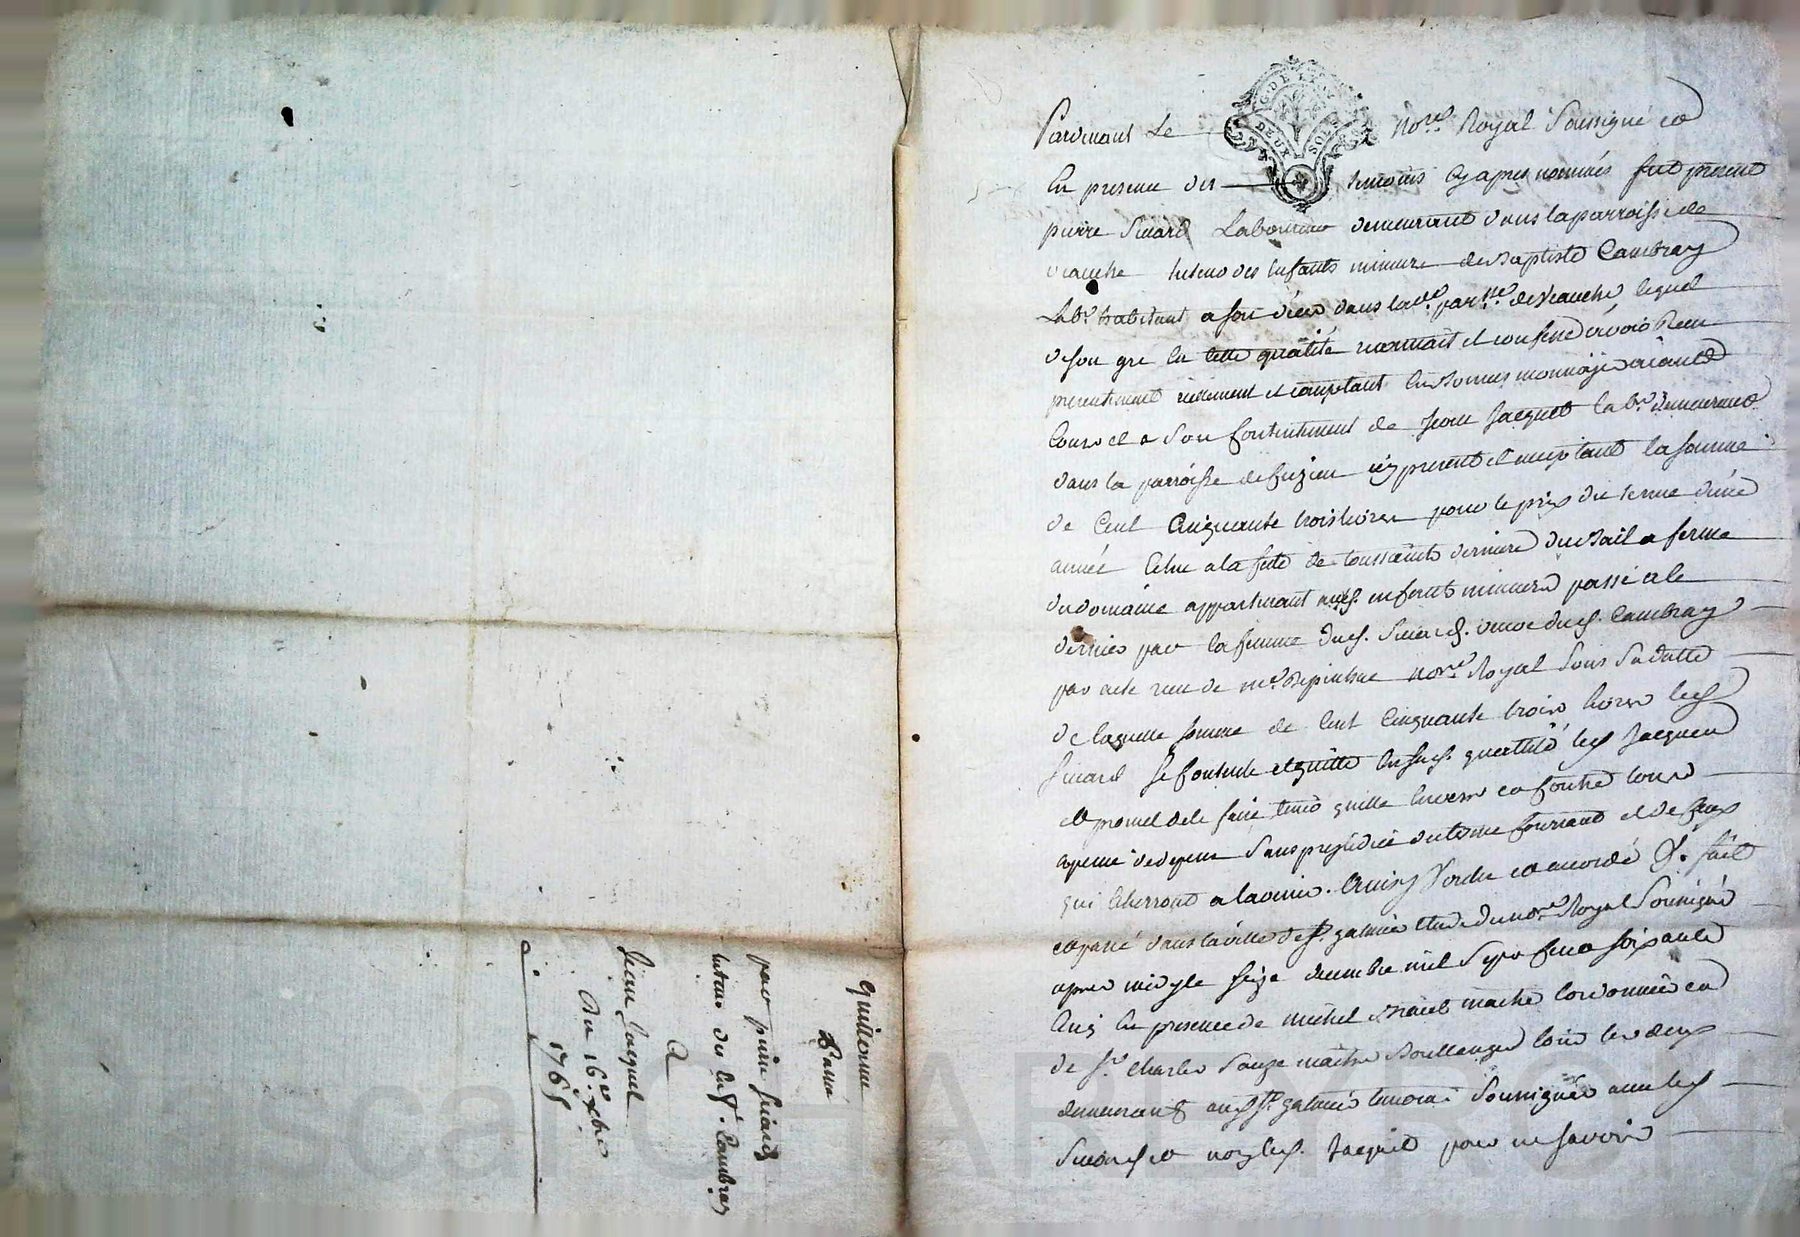 Pardevant Le nore. Royal Soussigné et
En presence des temoins cy apres nommés fut present
pierre Simard Laboureur demeurant dans la parroisse de
veauche tuteur des Enfants mineurs de Baptiste Cambray
Labr. habitant a son vivant dans lade. parsse. de veauche lequel
de son gré En cette qualité reconnait et confesse avoir Receu
presentement réellement et comptant En Bonnes monnoyes aiant
Cours et a son Contentement de Jean Jacquet labr. demeurant
dans la parroisse de cuzieu icy present et acceptant la somme
de Cent Cinquante trois livres pour le prix du terme d'une
année Echue a la fete de toussaints derniere du Bail a ferme
du domaine appartenant auxs. enfants mineurs passé a le
dernier par la femme duds. Simards. veuve duds. Cambray
par acte receu de me. nore. Royal sous sa datte
de laquelle somme de Cent Cinquante trois livres leds
Simard se contente et quitte En sads. quallité leds Jacquet
et promet de le faire tenir quitte Envers et Contre tous a
apeine de depens Sans prejudice du terme Courrant et de Ceux
qui Echerront a l'avenir. Ainsy Voulu et accordé &. fait
et passé dans la ville de St. galmier Etude du nore. Royal Soussigné
apres midy le seize decembre mil Sept Cent soixante
Cinq En presence de michel maitre Cordonnier et
de Sr. Charles maitre Boullanger tous les deux
demeurants auds St. galmier temoins Soussignés avec leds
Simard et non leds. Jacquet pour ne savoir
quittance
Passée
par pierre Simard
tuteur des Enfs. Cambray
a
Jean Jacquet
Du 16e. xbre
1765
DEUX SOLS
G. DE LYON